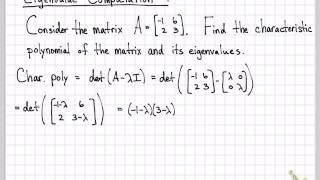 Eigenvalue Computation
Consider the matrix A = [-1 6; 2 3]. Find the characteristic
polynomial of the matrix and its eigenvalues.
Char. poly = det(A-λI) = det([-1 6; 2 3] - [λ 0; 0 λ])
= det([-1-λ 6; 2 3-λ]) = (-1-λ)(3-λ)